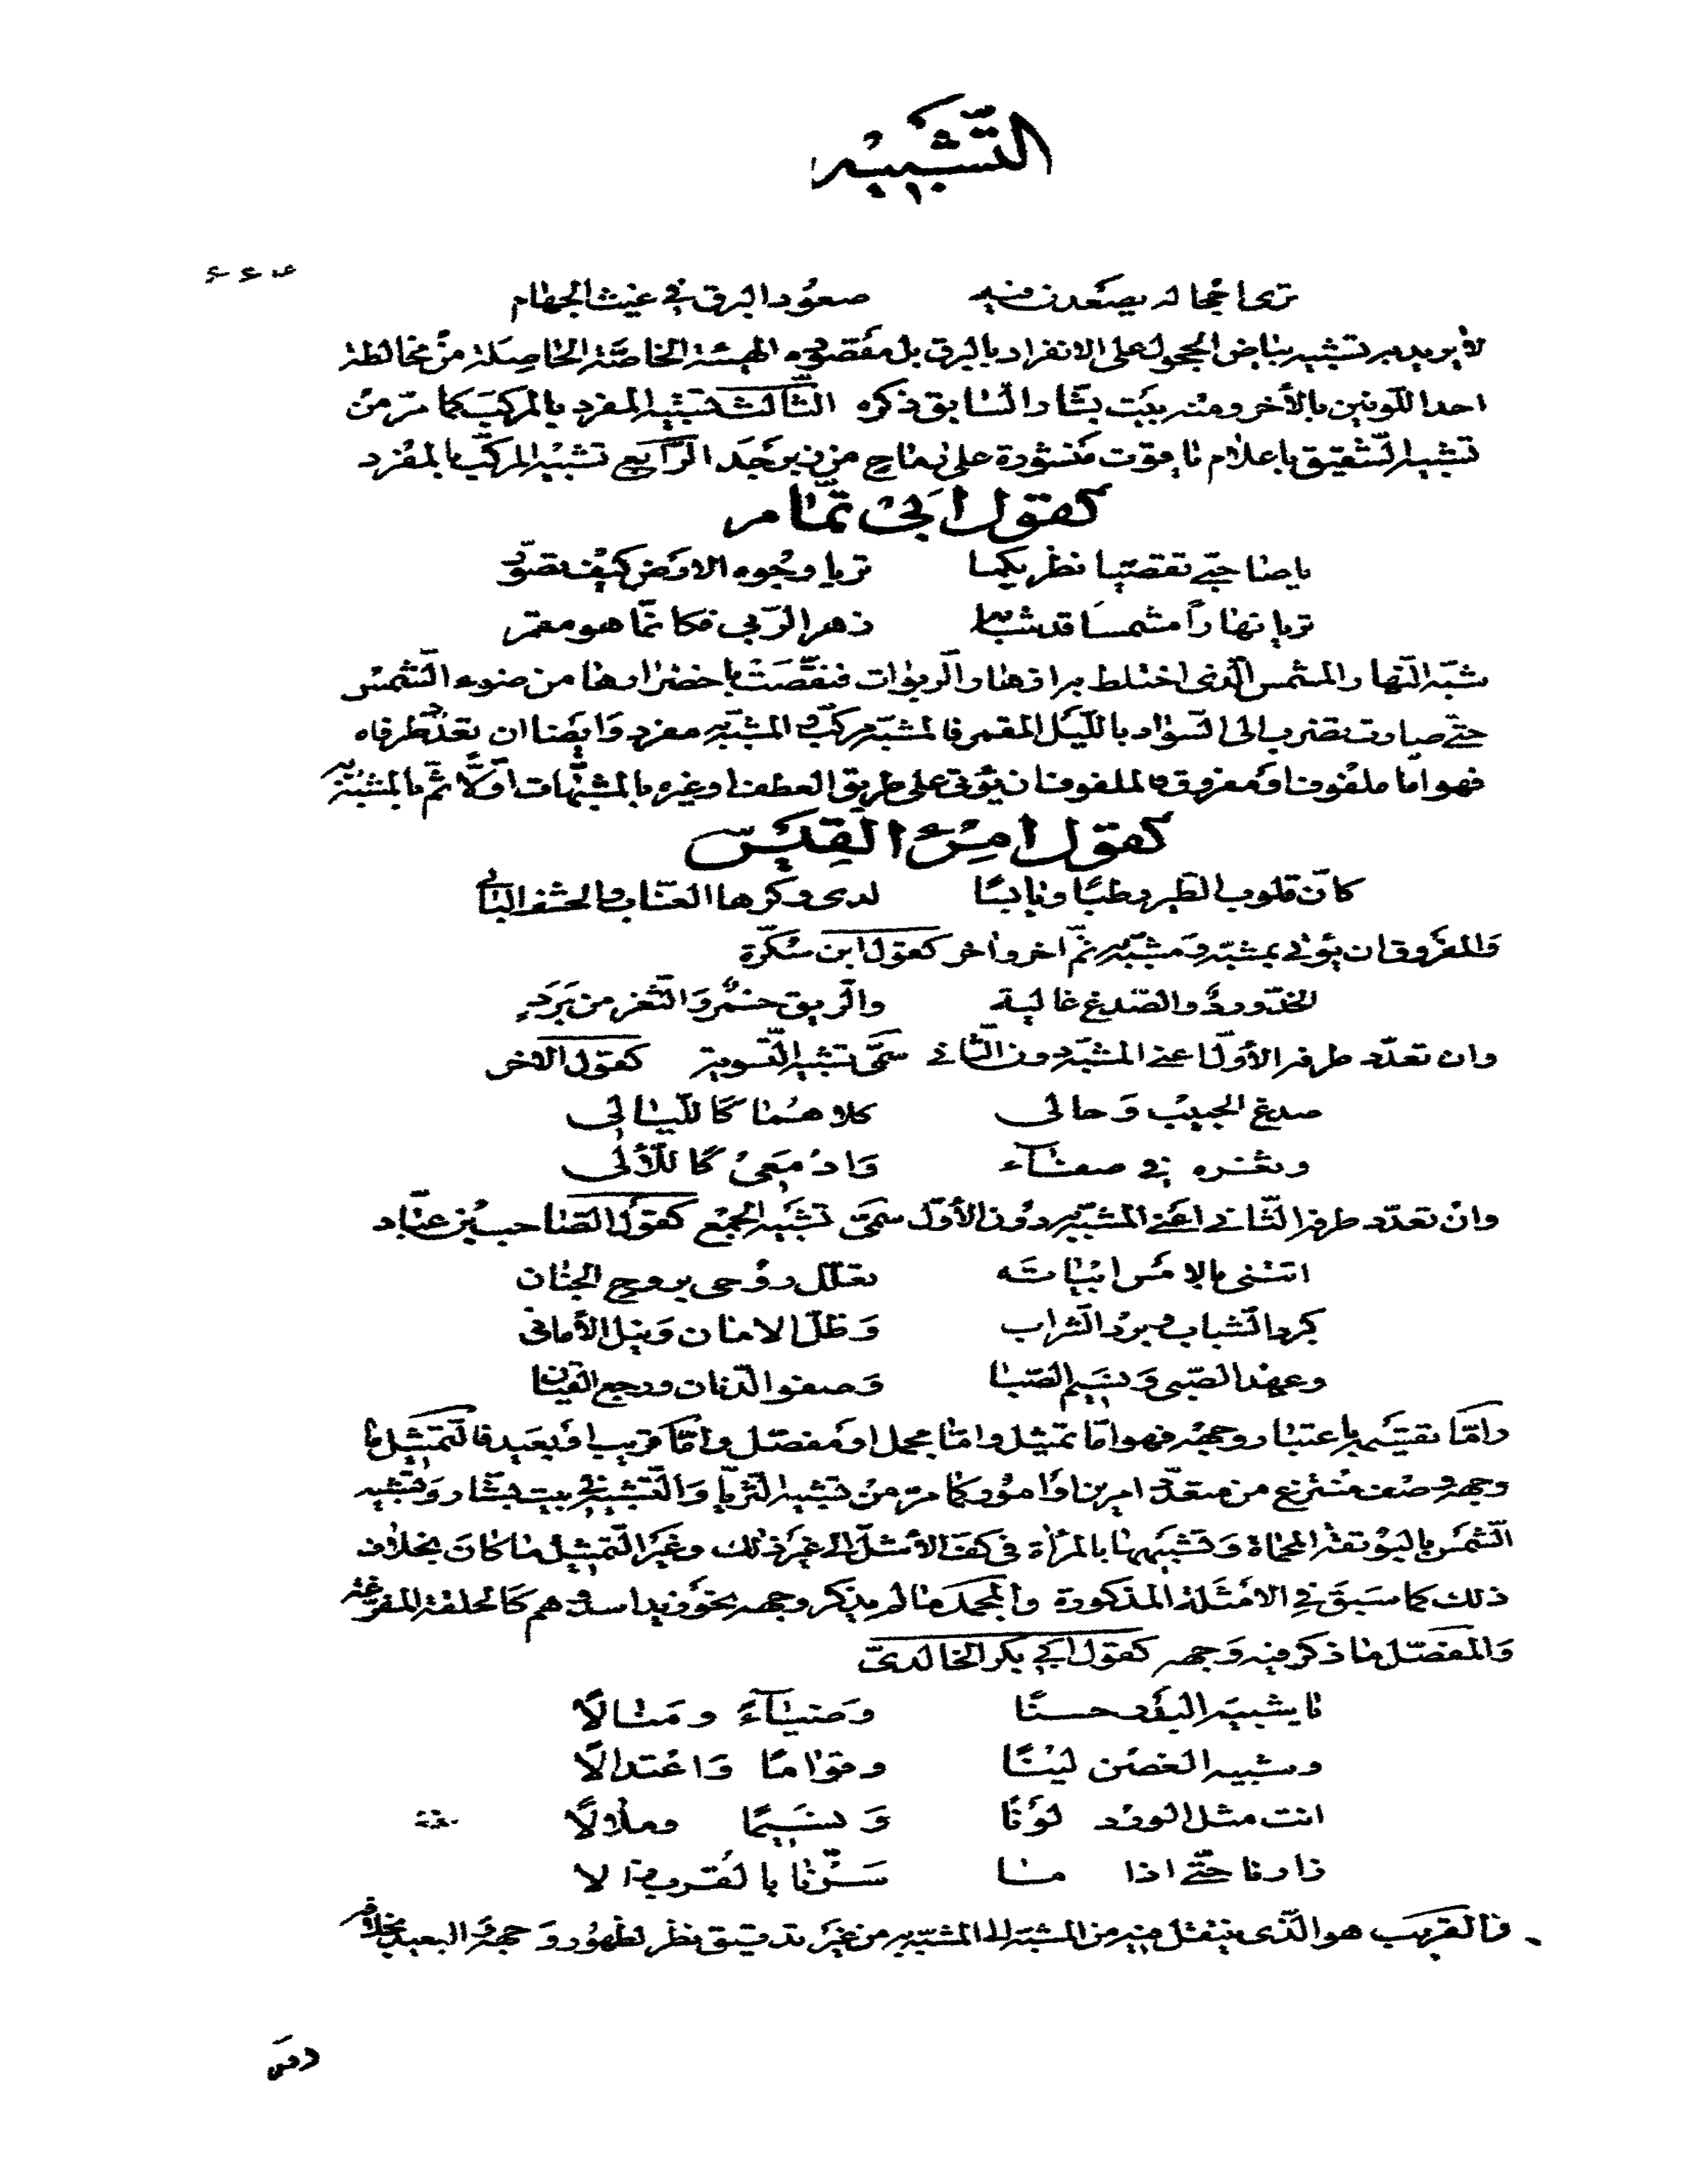 التّشبيه
ترى احجاله يصعدن فيه صعود البرق في غيث الجهام
لا يريد به تشبيه بياض الحجول على الانفراد بالبرق بل مقصوده الهيئة الخاصّة الحاصِلة من مخالطة
احد اللّونين بالأخر ومنه بيَت بشّار السّابق ذكره الثّالث تشبيه المفرد بالمركّب كما مرّ من
تشبيه الشّقيق باعلام ياقوت منشورة على رماح من زبرجَد الرّابع تشبيه المركّب بالمفرد
كقول ابي تمّام
يا صاحبيّ تقصّيا نظريكما تريا وجُوه الارض كيف تصوّر
تريا نهاراً مشمساً قد شابه زهر الرّبى فكانّما هو مقمر
شبّه النّهار المشمس الّذي اختلط به ازهار الرّبوات فنقّصَت باخضرارها من ضوء الشّمس
حتّى صارت تضرب الى السّواد باللّيل المقمر فالمشبّه مركّب والمشبّه به مفرد وَايضا ان تعدّد طرفاه
فهو امّا ملفُوف او مَفروق فالملفوف ان يؤتى على طريق العطف او غيره بالمشبّهات اوّلاً ثمّ بالمشبّه به
كقول امرئ القيس
كانّ قلوب الطّير رطبًا ويابسًا لدى وكرها العنّاب والحشف البالي
وَالمفرُوق ان يؤتى بمشبّه وَمشبّه به ثمّ اخر واخر كقول ابن سكّرة
الخدّ وردٌ والصّدغ غالية والرّيق خمرٌ وَالثّغر من بَرَدِ
وان تعدّد طرفه الأوّل اعني المشبّه دون الثّاني سمّي تشبيه التّسوية كقول الاخر
صدغ الحبيب وَحالي كلاهُما كَاللّيالي
وثغره في صفآء وَادمعي كَاللّألي
وان تعدّد طرفه الثّاني اعني المشبّه به دون الأوّل سمّي تشبيه الجمع كقول الصّاحب بن عبّاد
اتتني بالامس ابياته تعلّل روحي بروح الجنان
كبرد الشّباب وبرد الشّراب وَظلّ الامان وَنيل الأماني
وعهد الصّبى وَنسيم الصّبا وَصفو الدّنان ورجع القيان
وامّا تقسيمه باعتبار وجهه فهو امّا تمثيل وامّا مجمل او مفصّل وامّا قريب او بعيد فالتّمثيل ما
وجهه وصف منتزع من متعدّد امرين او امور كما مرّ من تشبيه الثّريّا وَالتّشبيه في بيت بشّار وَتشبيه
الشّمس بالبوتقة المحماة وَتشبيهها بالمرأة في كفّ الأشلّ الى غير ذلك وغير التّمثيل ما كان بخلاف
ذلك كما سبَق في الامثلة المذكورة والمجمل ما لم يذكر وجهه نحو زيد اسد وهم كالحلقة المفرغة
وَالمفصّل ما ذكر فيه وَجهه كقول ابي بكر الخالديّ
يا شبيه البدر حسنًا وَضيآءً ومَنالًا
وشبيه الغصن لينًا وقوامًا وَاعتدالًا
انت مثل الورد لونًا وَنسيمًا وملالًا
زارنا حتّى اذا ما سَرّنا بالقرب زالا
فالقريب هو الّذي ينتقل فيه من المشبّه الى المشبّه به من غير تدقيق نظر لظهور وَجهه وَالبعيد بخلافه